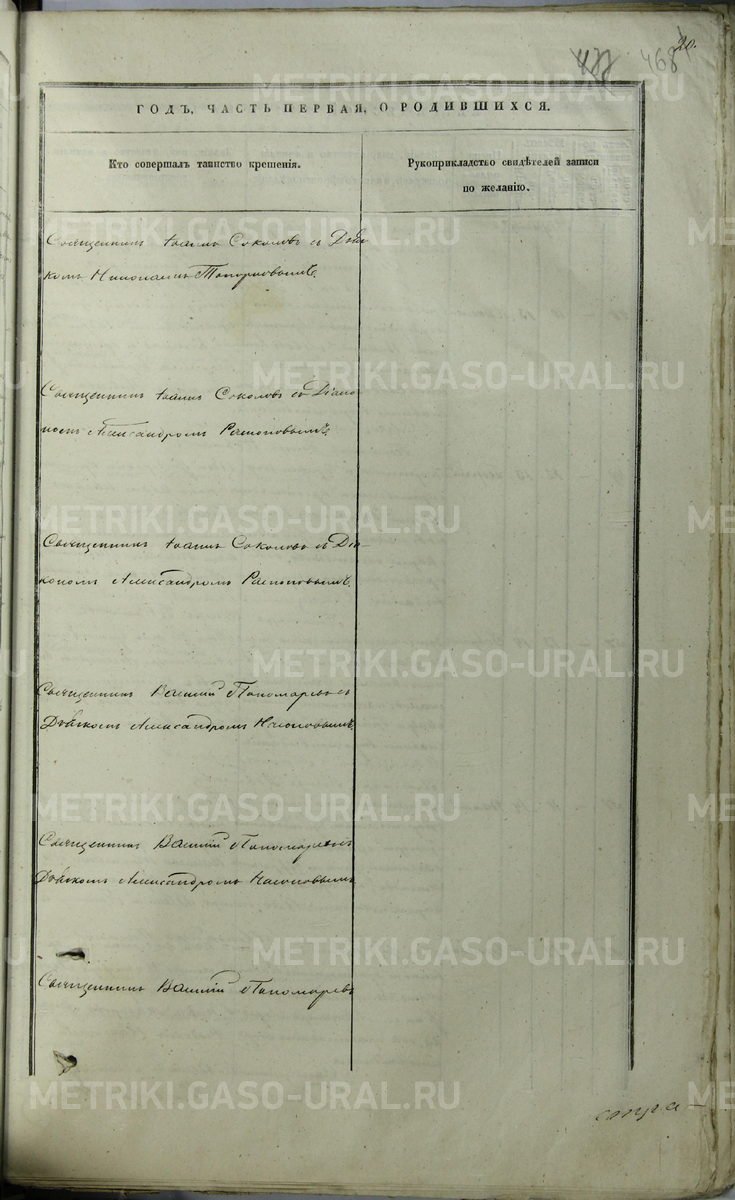 20.
468
ГОДЪ, ЧАСТЬ ПЕРВАЯ, О РОДИВШИХСЯ.
Кто совершалъ таинство крещенія.
Рукоприкладство свидѣтелей записи
по желанію.
Священникъ Іоаннъ Соколовъ съ Дья
комъ Николаемъ Топорковымъ.
Священникъ Іоаннъ Соколовъ съ Діако
номъ Александромъ
Священникъ Іоаннъ Соколовъ съ Діа-
кономъ Александромъ
Священникъ Василій Пономаревъ съ
Дьячкомъ Александромъ
Священникъ Василій Пономаревъ съ
Дьячкомъ Александромъ
Священникъ Василій Пономаревъ
METRIKI.GASO-URAL.RU